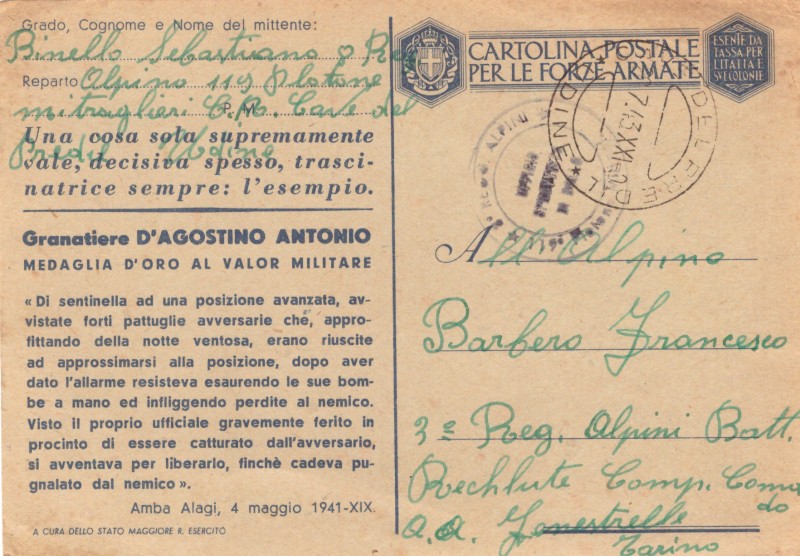 Grado, Cognome e Nome del mittente:
Binello Sebastiano
Reparto Alpino 119 Plotone
mitraglieri Cave del
P. M.
Predil Udine
Una cosa sola supremamente
vale, decisiva spesso, trasci-
natrice sempre: l'esempio.
Granatiere D'AGOSTINO ANTONIO
MEDAGLIA D'ORO AL VALOR MILITARE
« Di sentinella ad una posizione avanzata, av-
vistate forti pattuglie avversarie che, appro-
fittando della notte ventosa, erano riuscite
ad approssimarsi alla posizione, dopo aver
dato l'allarme resisteva esaurendo le sue bom-
be a mano ed infliggendo perdite al nemico.
Visto il proprio ufficiale gravemente ferito in
procinto di essere catturato dall'avversario,
si avventava per liberarlo, finchè cadeva pu-
gnalato dal nemico ».
Amba Alagi, 4 maggio 1941-XIX.
A CURA DELLO STATO MAGGIORE R. ESERCITO
CARTOLINA POSTALE
PER LE FORZE ARMATE
ESENTE DA
TASSA PER
L'ITALIA E
SVE COLONIE
DEL PREDIL
7.43.XXI
UDINE
REGG. ALPINI
All Alpino
Barbero Francesco
3º Reg. Alpini Batt.
Rechlute Comp. Coma
do
A.A. Fenestrelle
Torino